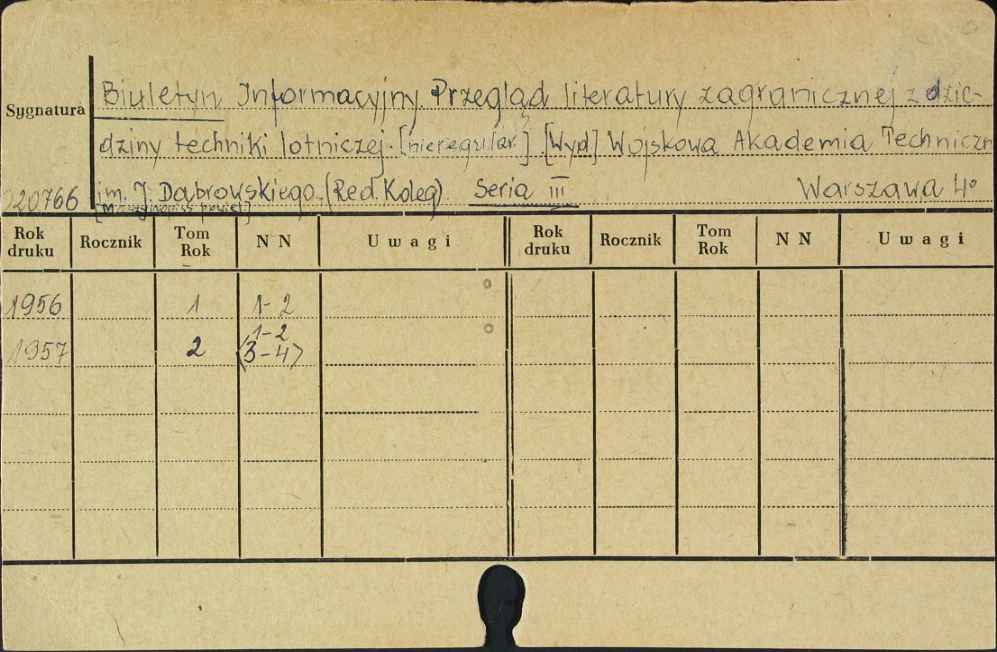 Biuletyn Informacyjny. Przegląd literatury zagranicznej z dzie-
Sygnatura
dziny techniki lotniczej. [nieregular.] [Wyd] Wojskowa Akademia Techniczn
020766 im. J. Dąbrowskiego. (Red. Koleg) Seria III Warszawa 4°
Rok druku Rocznik Tom Rok N N Uwagi Rok druku Rocznik Tom Rok N N Uwagi
1956 1 1-2
1-2
1957 2 (3-4)